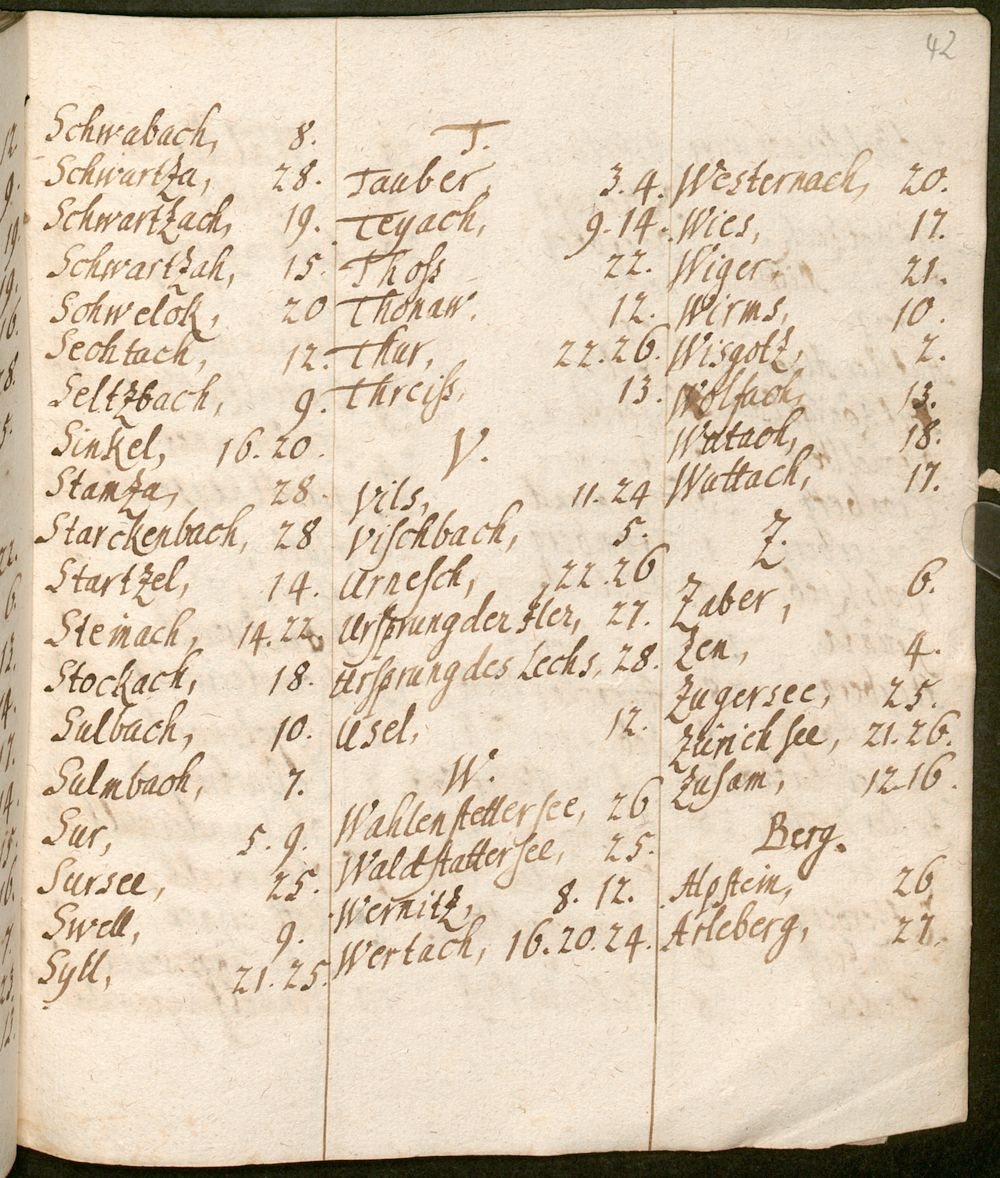 42
Schwabach, 8.
Schwartza, 28.
Schwartzach, 19.
Schwartzah, 15.
Schwelck, 20
Sechtach, 12.
Seltzbach, 9.
Sinkel, 16. 20.
Stamza, 28.
Starckenbach, 28
Startzel, 14.
Steinach, 14. 22.
Stockach, 18.
Sulbach, 10.
Sulmbach, 7.
Sur, 5. 9.
Sursee, 25.
Swell, 9.
Syll, 21. 25.
T.
Tauber, 3. 4.
Teyach, 9. 14.
Thoss 22.
Thonaw. 12.
Thur, 22. 26.
Threiß, 13.
V.
Vils, 11. 24
Vischbach, 5.
Urnesch, 22. 26
Ursprung der Iler, 27.
Ursprung des Lechs, 28.
Usel, 12.
W.
Wahlenstetter see, 26
Waldstatter see, 25.
Wernitz, 8. 12.
Wertach, 16. 20. 24.
Westernach, 20.
Wies, 17.
Wiger, 21.
Wirms, 10.
Wisgotz, 2.
Wolfach, 13.
Wutach, 18.
Wuttach, 17.
Z.
Zaber, 6.
Zen, 4.
Zugersee, 25.
Zürich see, 21. 26.
Zusam, 12. 16.
Berg.
Alpstein, 26.
Arleberg, 27.